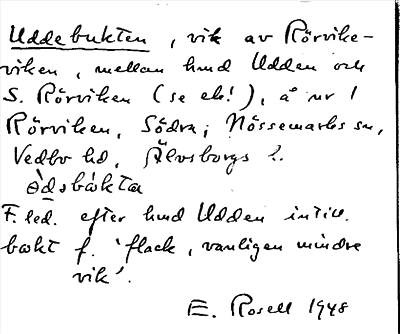 Uddebukten, vik av Rörvike-
viken, mellan hmd Udden och
S. Rörviken (se ek!), å nr 1
Rörviken, Södra; Nössemarks sn,
Vedbo hd, Älvsborgs l.
F.led. efter hmd Udden intill.
bækt f. 'flack, vanligen mindre
vik'.
E. Rosell 1948